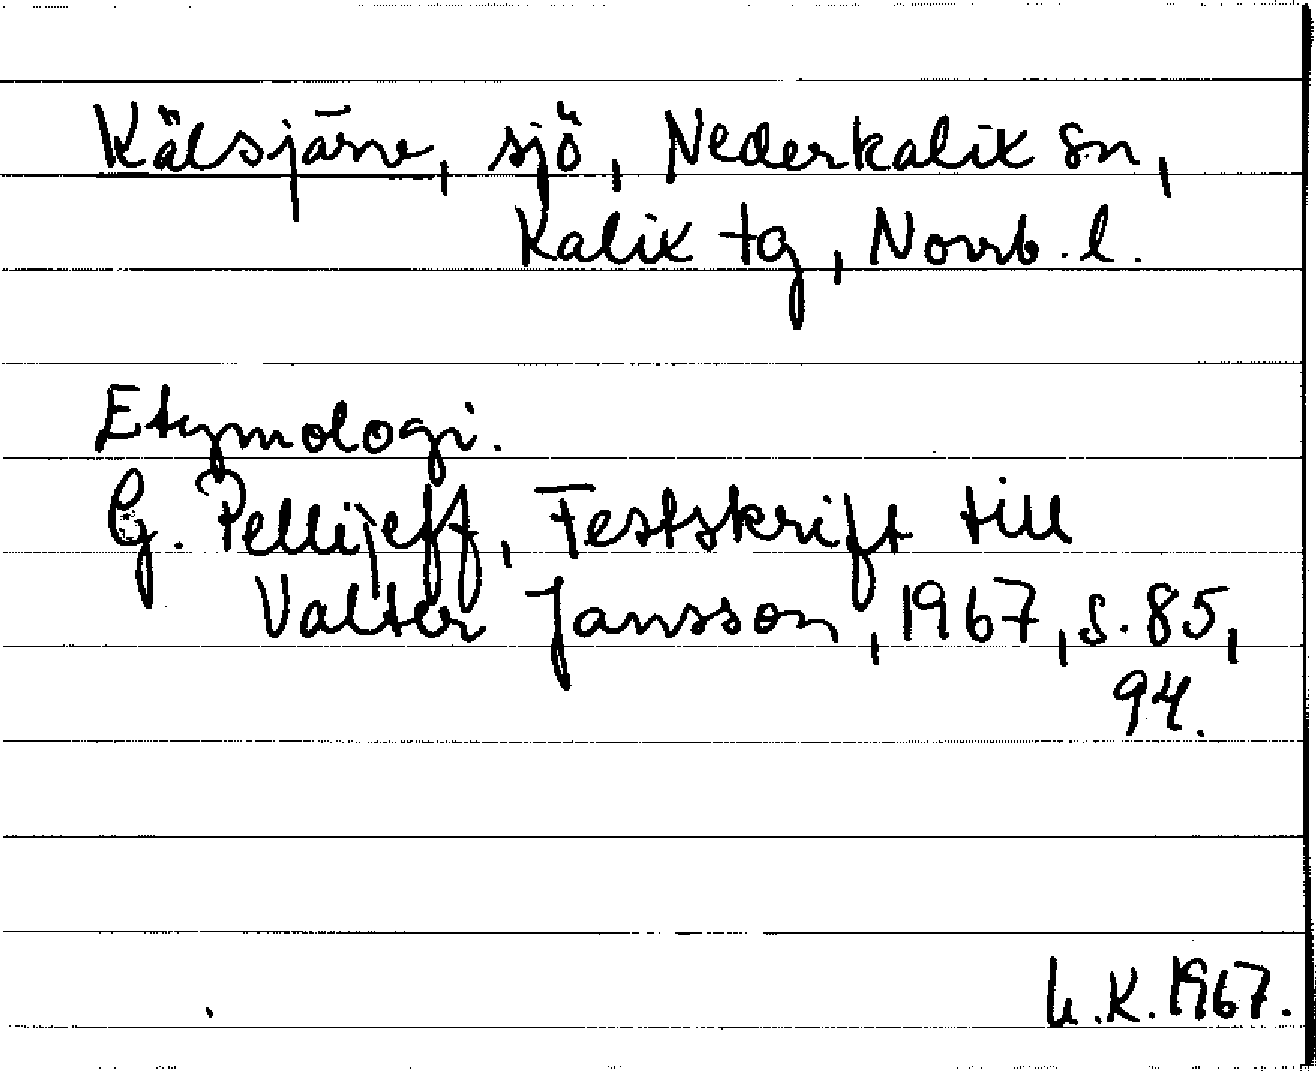 Kälsjärve, sjö, Nederkalix sn,
Kalix tg, Norrb. l.
Etymologi.
G. Pellijeff, Festskrift till
Valter Jansson, 1967, s. 85,
94.
L.K. 1967.